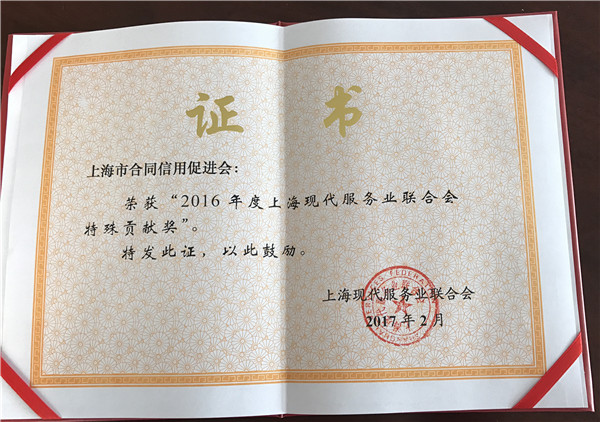 证 书
上海市合同信用促进会：
荣获“2016 年度上海现代服务业联合会
特殊贡献奖”。
特发此证，以此鼓励。
上海现代服务业联合会
2017 年 2 月